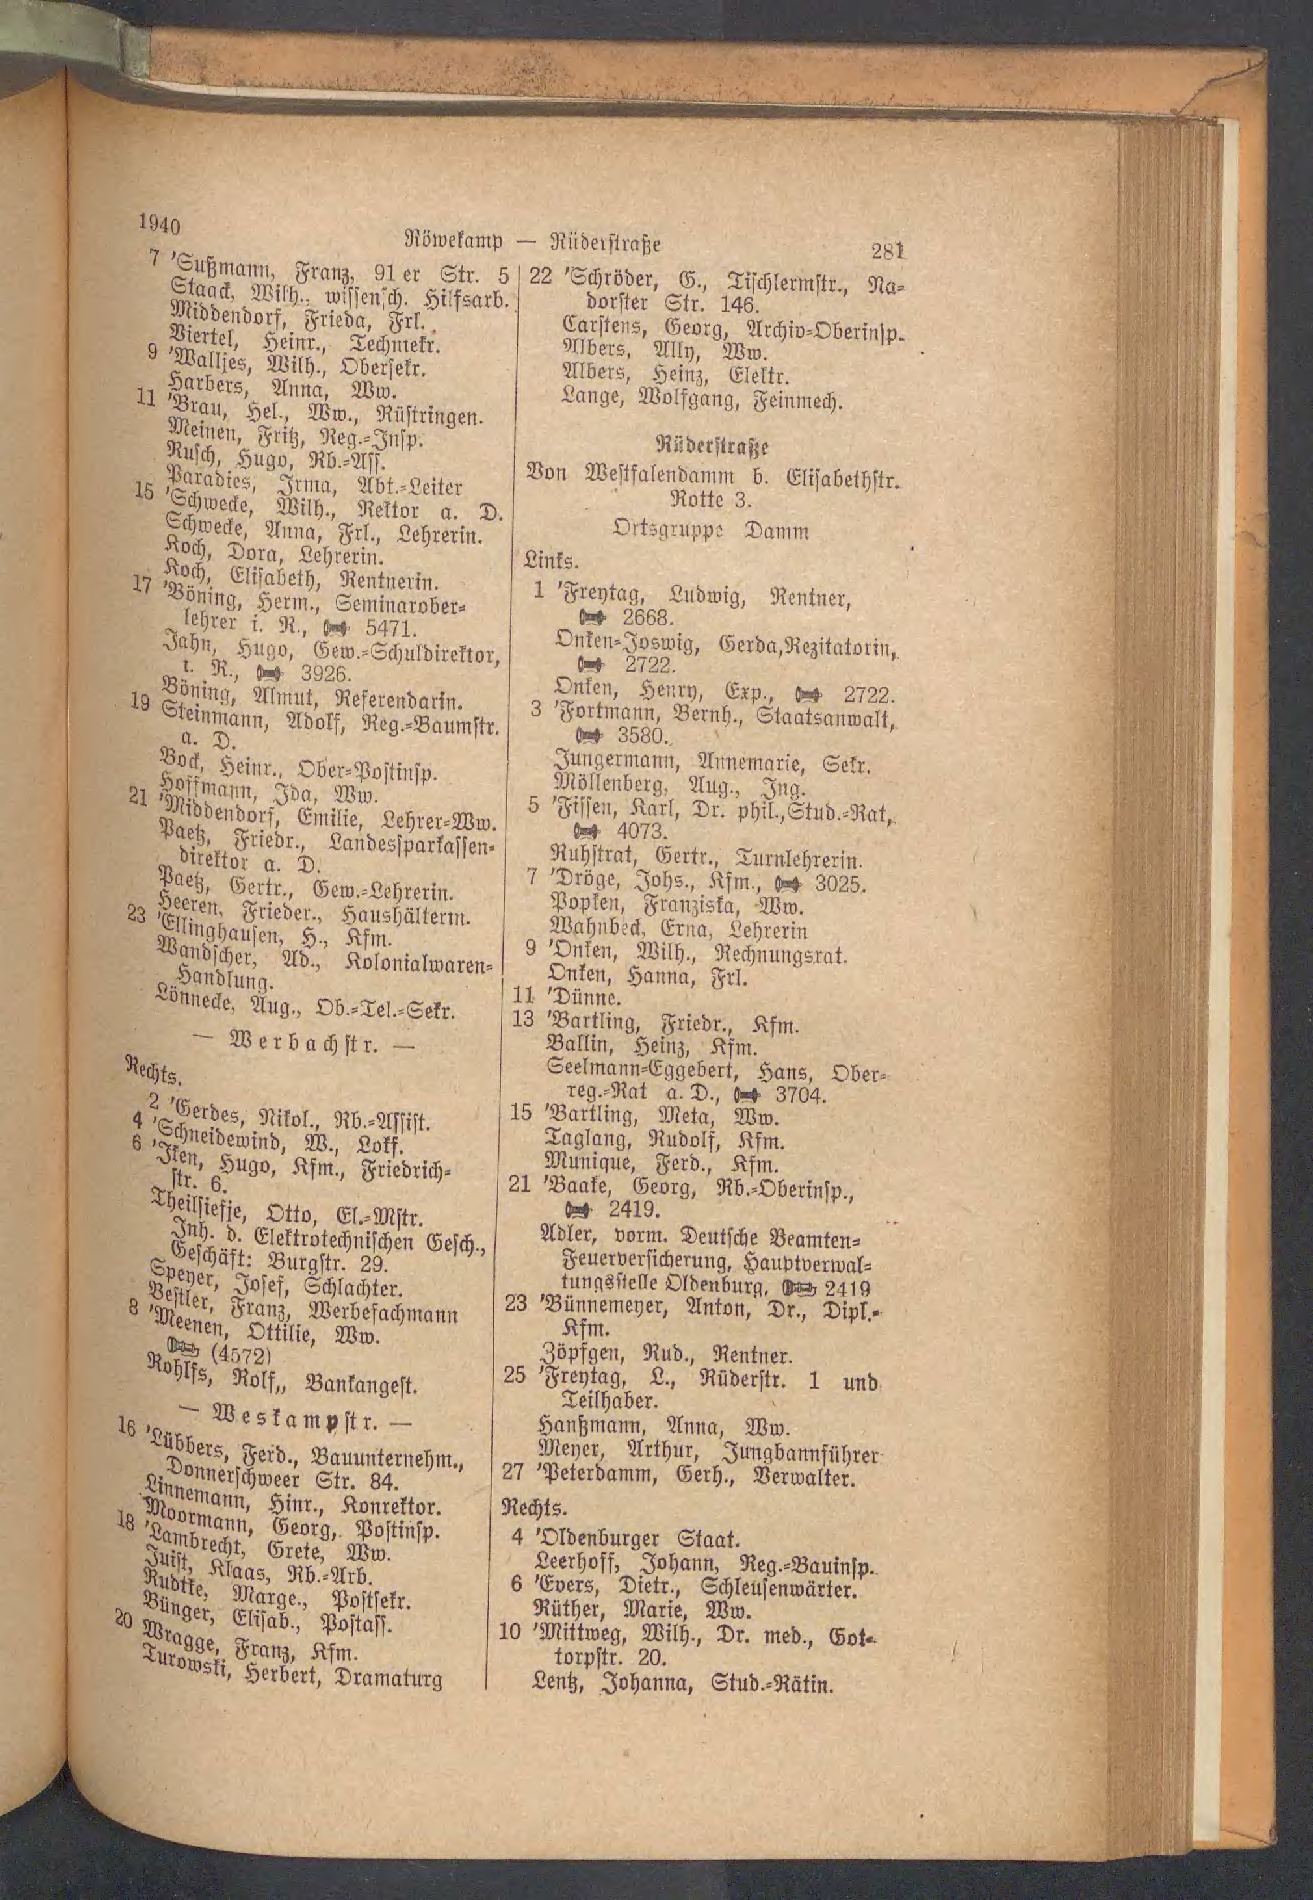 1940
Röwekamp — Rüderstraße
281
7 'Sußmann, Franz, 91er Str. 5
Staack, Wilh., wissensch. Hilfsarb.
Middendorf, Frieda, Frl.
Viertel, Heinr., Techniekr.
9 'Walljes, Wilh., Obersekr.
Harbers, Anna, Ww.
11 'Brau, Hel., Ww., Rüstringen.
Meinen, Fritz, Reg.=Insp.
Rusch, Hugo, Rb.=Ass.
Paradies, Irma, Abt.=Leiter
15 'Schwecke, Wilh., Rektor a. D.
Schwecke, Anna, Frl., Lehrerin.
Koch, Dora, Lehrerin.
Koch, Elisabeth, Rentnerin.
17 'Böning, Herm., Seminarober=
lehrer i. R., 5471.
Jahn, Hugo, Gew.=Schuldirektor,
i. R., 3926.
Böning, Almut, Referendarin.
19 Steinmann, Adolf, Reg.=Baumstr.
a. D.
Bock, Heinr., Ober=Postinsp.
Hoffmann, Ida, Ww.
21 'Middendorf, Emilie, Lehrer=Ww.
Paetz, Friedr., Landessparkassen=
direktor a. D.
Paetz, Gertr., Gew.=Lehrerin.
Heeren, Frieder., Haushälterin.
23 'Ellinghausen, H., Kfm.
Wandscher, Ad., Kolonialwaren=
Handlung.
Lönnecke, Aug., Ob.=Tel.=Sekr.
— Werbachstr. —
Rechts.
2 'Gerdes, Nikol., Rb.=Assist.
4 'Schneidewind, W., Lokf.
6 'Iken, Hugo, Kfm., Friedrich=
str. 6.
Theilsiefje, Otto, El.=Mstr.
Inh. d. Elektrotechnischen Gesch.,
Geschäft: Burgstr. 29.
Speyer, Josef, Schlachter.
Vestler, Franz, Werbefachmann
8 'Meenen, Ottilie, Ww.
(4572)
Rohlfs, Rolf,, Bankangest.
— Weskampstr. —
16 'Lübbers, Ferd., Bauunternehm.,
Donnerschweer Str. 84.
Linnemann, Hinr., Konrektor.
Moormann, Georg, Postinsp.
18 'Lambrecht, Grete, Ww.
Juist, Klaas, Rb.=Arb.
Rudtke, Marge., Postsekr.
Bünger, Elisab., Postass.
20 Wragge, Franz, Kfm.
Turowski, Herbert, Dramaturg
22 'Schröder, G., Tischlermstr., Na=
dorster Str. 146.
Carstens, Georg, Archiv=Oberinsp.
Albers, Ally, Ww.
Albers, Heinz, Elektr.
Lange, Wolfgang, Feinmech.
Rüderstraße
Von Westfalendamm b. Elisabethstr.
Rotte 3.
Ortsgruppe Damm
Links.
1 'Freytag, Ludwig, Rentner,
2668.
Onken=Joswig, Gerda, Rezitatorin,
2722.
Onken, Henry, Exp., 2722.
3 'Fortmann, Bernh., Staatsanwalt,
3580.
Jungermann, Annemarie, Sekr.
Möllenberg, Aug., Ing.
5 'Fissen, Karl, Dr. phil., Stud.=Rat,
4073.
Ruhstrat, Gertr., Turnlehrerin.
7 'Dröge, Johs., Kfm., 3025.
Popken, Franziska, Ww.
Wahnbeck, Erna, Lehrerin
9 'Onken, Wilh., Rechnungsrat.
Onken, Hanna, Frl.
11 'Dünne.
13 'Bartling, Friedr., Kfm.
Ballin, Heinz, Kfm.
Seelmann=Eggebert, Hans, Ober=
reg.=Rat a. D., 3704.
15 'Bartling, Meta, Ww.
Taglang, Rudolf, Kfm.
Munique, Ferd., Kfm.
21 'Baake, Georg, Rb.=Oberinsp.,
2419.
Adler, vorm. Deutsche Beamten=
Feuerversicherung, Hauptverwal=
tungsstelle Oldenburg, 2419
23 'Bünnemeyer, Anton, Dr., Dipl.=
Kfm.
Zöpfgen, Rud., Rentner.
25 'Freytag, L., Rüderstr. 1 und
Teilhaber.
Hanßmann, Anna, Ww.
Meyer, Arthur, Jungbannführer
27 'Peterdamm, Gerh., Verwalter.
Rechts.
4 'Oldenburger Staat.
Leerhoff, Johann, Reg.=Bauinsp.
6 'Evers, Dietr., Schleusenwärter.
Rüther, Marie, Ww.
10 'Mittweg, Wilh., Dr. med., Got=
torpstr. 20.
Lentz, Johanna, Stud.=Rätin.